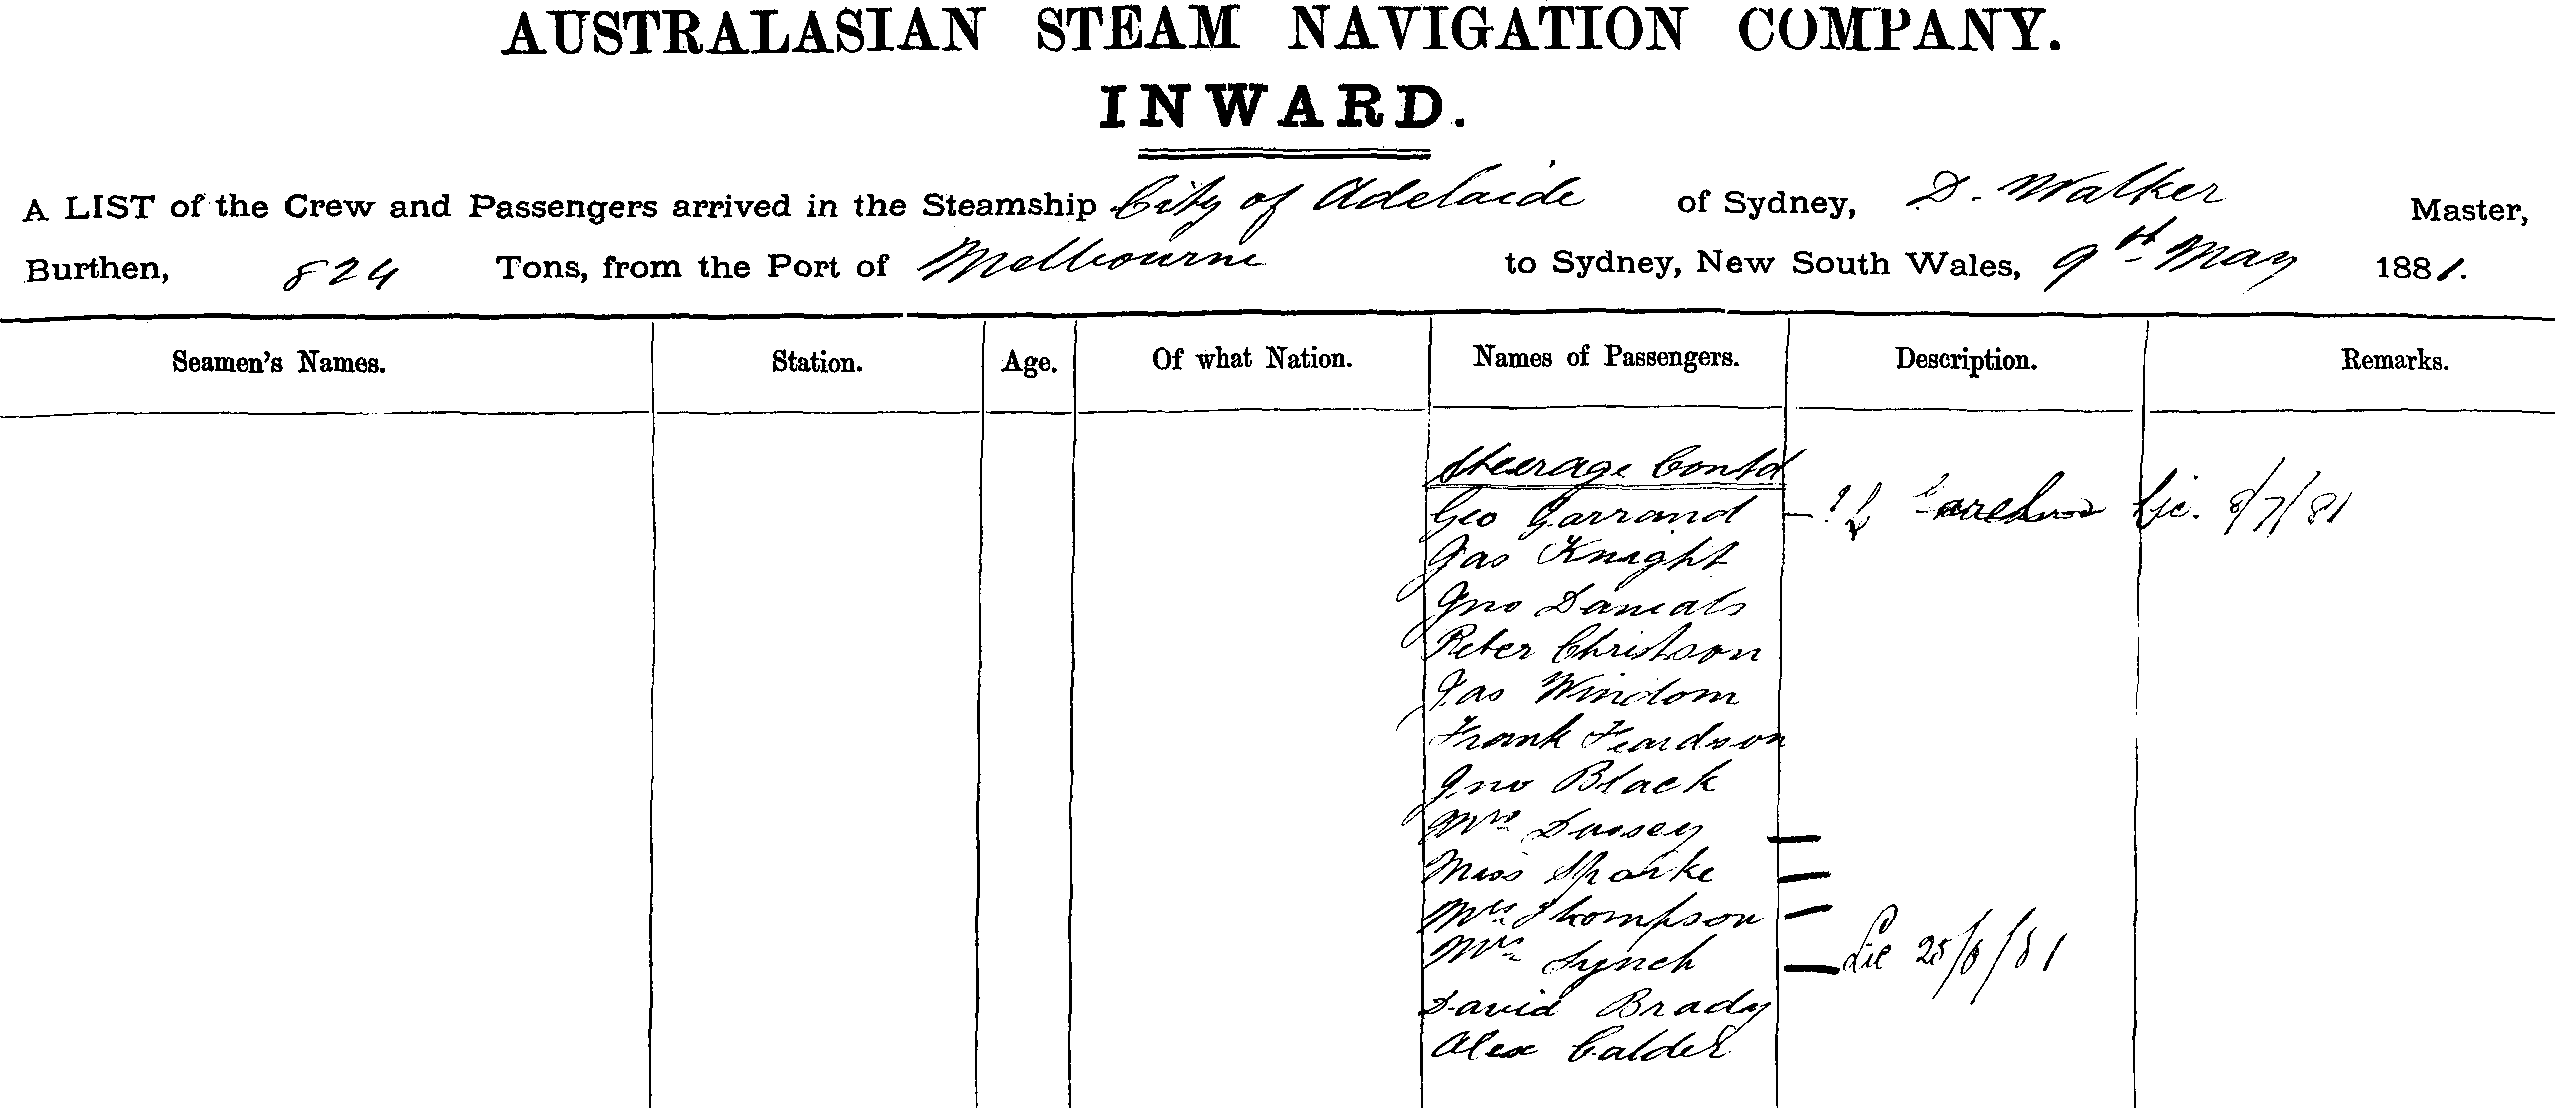 AUSTRALASIAN STEAM NAVIGATION COMPANY.
INWARD.
A LIST of the Crew and Passengers arrived in the Steamship City of Adelaide of Sydney, D. Walker Master,
Burthen, 824 Tons, from the Port of Melbourne to Sydney, New South Wales, 9th May 1881.
Seamen's Names. Station. Age. Of what Nation. Names of Passengers. Description. Remarks.
Steerage Contd
Geo Garrand Lic. 8/7/81
Jas Knight
Jno Danials
Peter Christson
Jas Windom
Frank Feardson
Jno Black
Mrs Dussey
Miss Sparke
Mrs Thompson
Mrs Lynch Lic 25/6/81
David Brady
Alex Calder